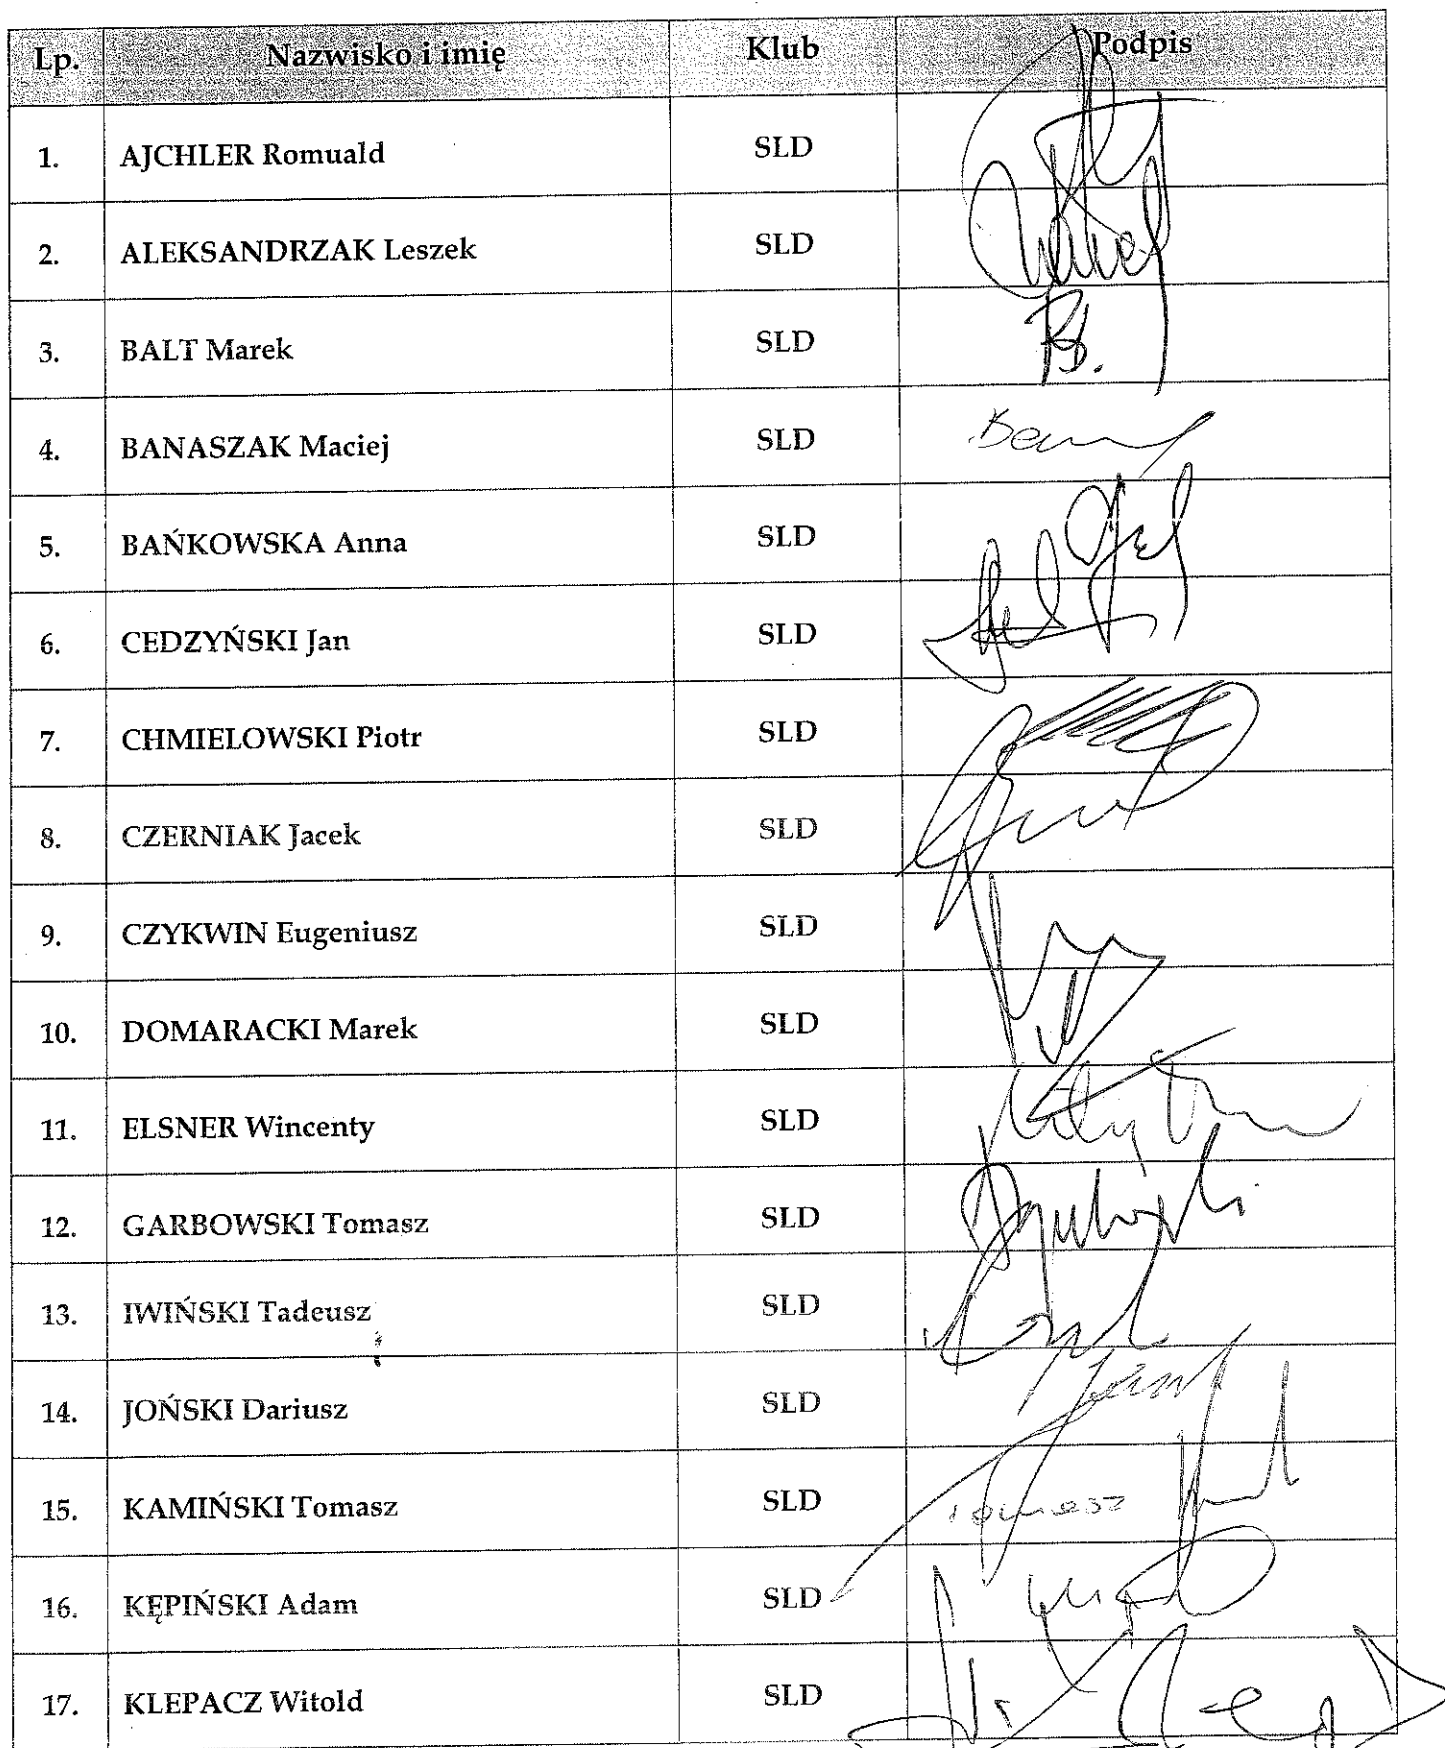 Lp. Nazwisko i imię Klub Podpis
1. AJCHLER Romuald SLD
2. ALEKSANDRZAK Leszek SLD
3. BALT Marek SLD
4. BANASZAK Maciej SLD
5. BAŃKOWSKA Anna SLD
6. CEDZYŃSKI Jan SLD
7. CHMIELOWSKI Piotr SLD
8. CZERNIAK Jacek SLD
9. CZYKWIN Eugeniusz SLD
10. DOMARACKI Marek SLD
11. ELSNER Wincenty SLD
12. GARBOWSKI Tomasz SLD
13. IWIŃSKI Tadeusz SLD
14. JOŃSKI Dariusz SLD
15. KAMIŃSKI Tomasz SLD Tomasz
16. KĘPIŃSKI Adam SLD
17. KLEPACZ Witold SLD